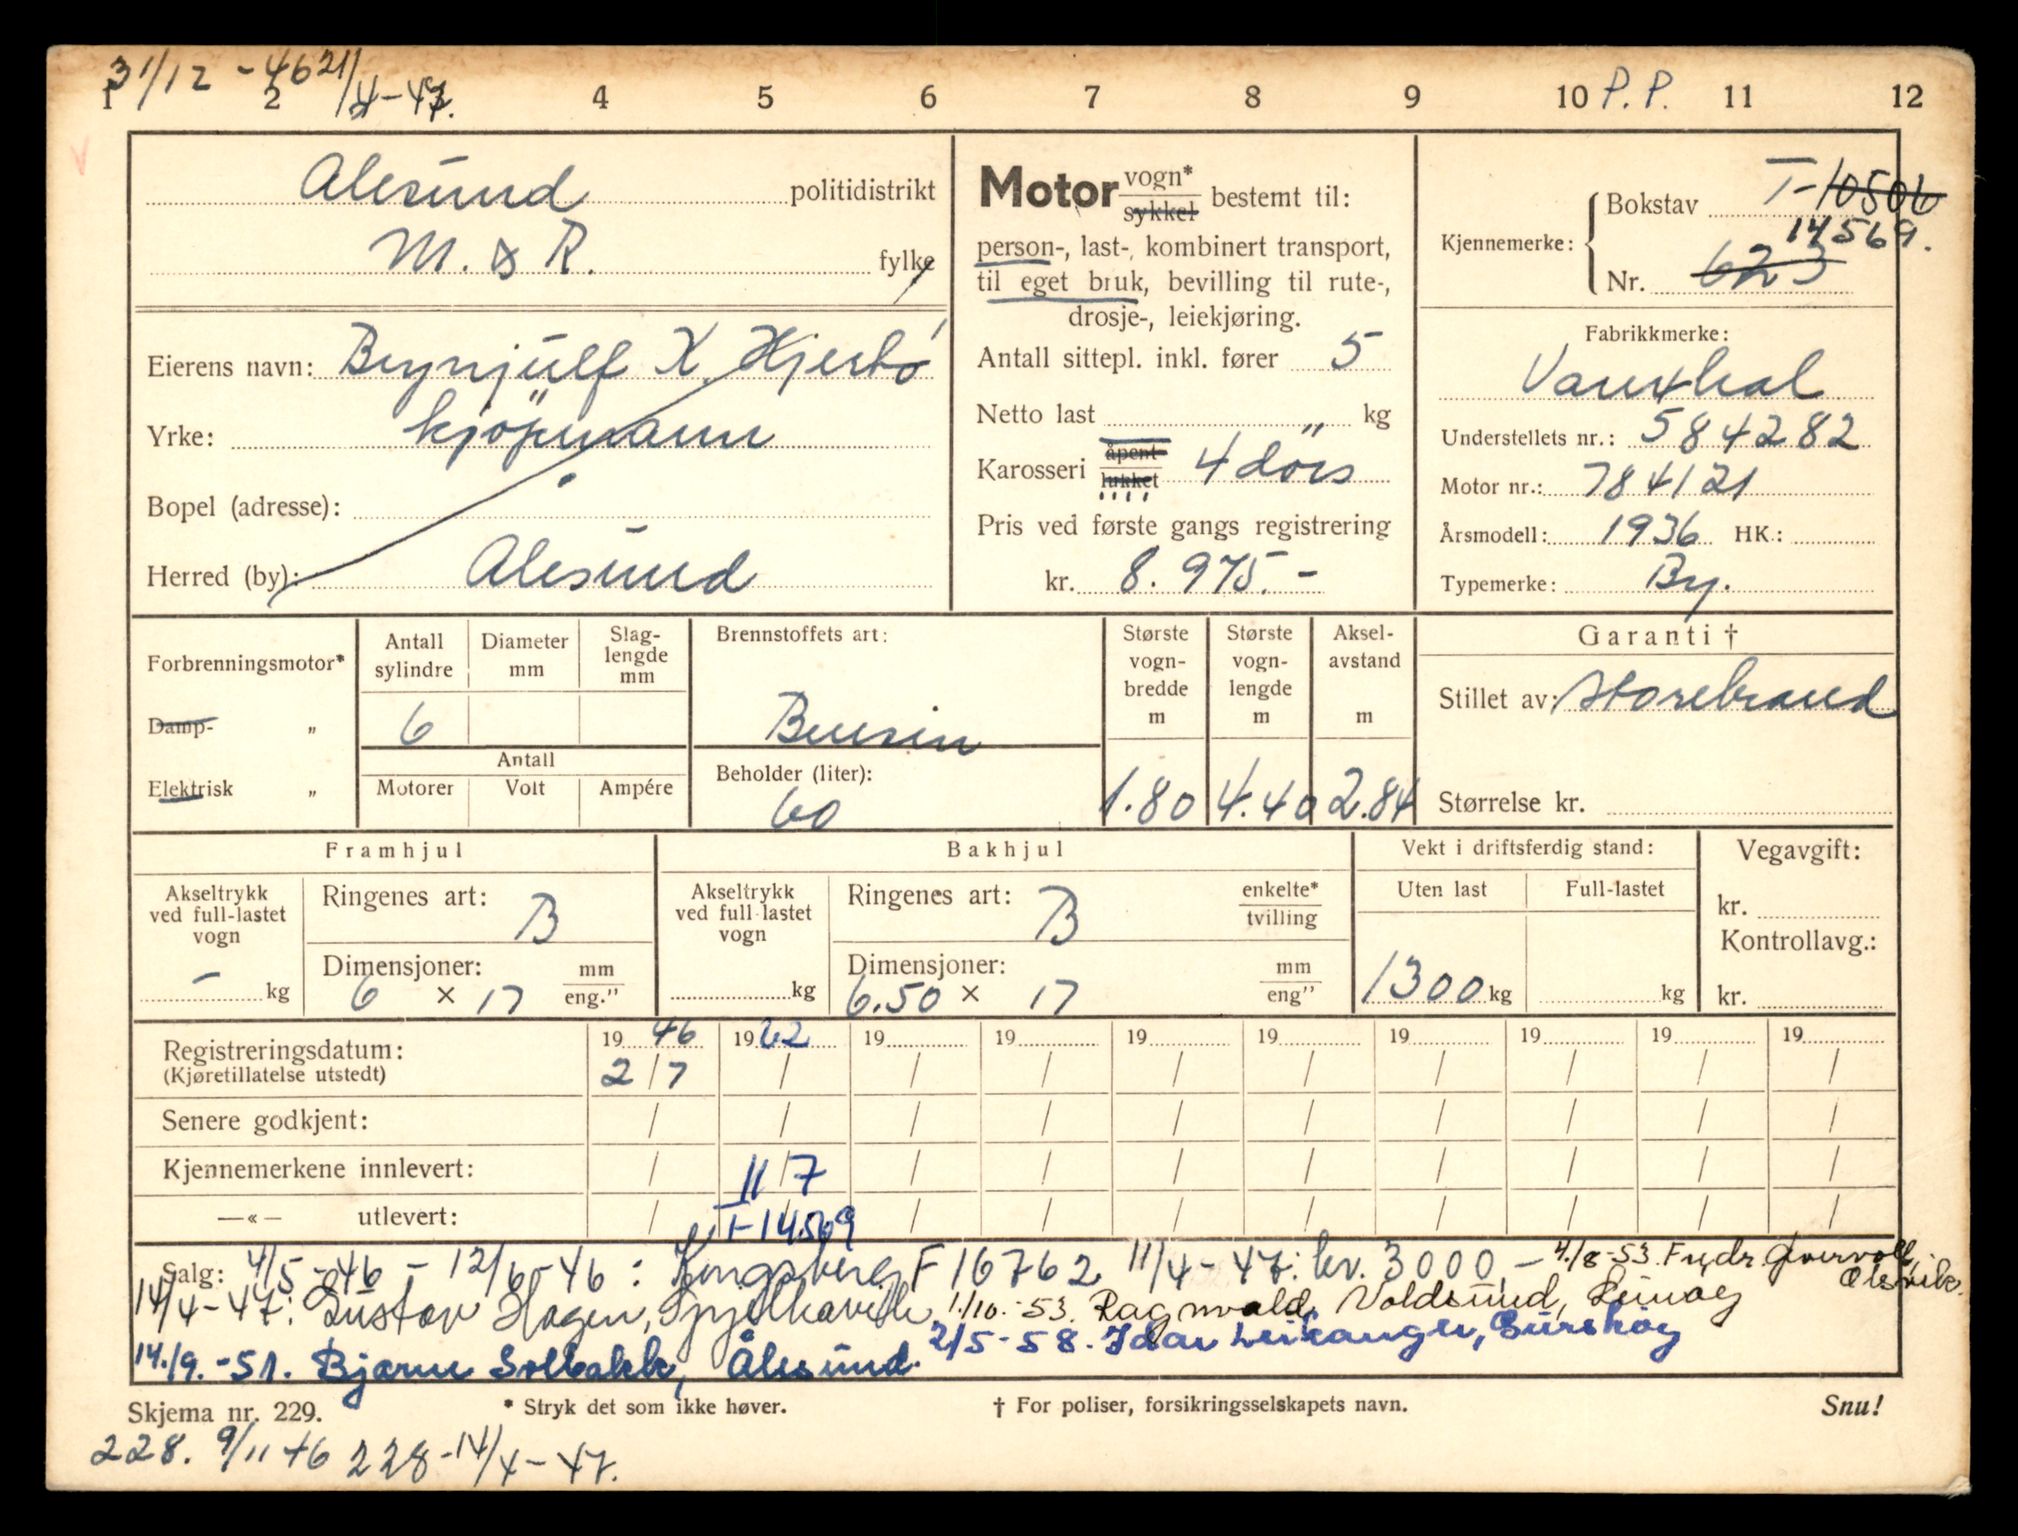 31/12 - 46 21/4-47.
1 2 4 5 6 7 8 9 10 P.P. 11 12
Alesund politidistrikt
M. & R. fylke
Eierens navn: Brynjulf K. Hjertö
Yrke: kjöpmann
Bopel (adresse):
Herred (by): Alesund
Motor vogn* sykkel bestemt til:
person-, last-, kombinert transport,
til eget bruk, bevilling til rute-,
drosje-, leiekjøring.
Antall sittepl. inkl. fører 5
Netto last " kg
Karosseri åpent lukket 4 dörs
Pris ved første gangs registrering
kr. 8.975.-
Kjennemerke: Bokstav T-10506
14569.
Nr. 623
Fabrikkmerke:
Vauxhal
Understellets nr.: 584282
Motor nr.: 784121
Årsmodell: 1936 HK.:
Typemerke: By.
Forbrenningsmotor*
Damp- "
Elektrisk "
Antall sylindre Diameter mm Slag-lengde mm
6
Antall
Motorer Volt Ampére
Brennstoffets art:
Bensin
Beholder (liter):
60
Største vogn-bredde m Største vogn-lengde m Aksel-avstand m
1.80 4.40 2.84
Garanti †
Stillet av: Storebrand
Størrelse kr.
Framhjul
Akseltrykk ved full-lastet vogn
- kg
Ringenes art: B
Dimensjoner: mm
6 × 17 eng."
Bakhjul
Akseltrykk ved full lastet vogn
kg
Ringenes art: B enkelte* tvilling
Dimensjoner: mm
6.50 × 17 eng"
Vekt i driftsferdig stand:
Uten last Full-lastet
1300 kg kg
Vegavgift:
kr.
Kontrollavg.:
kr.
Registreringsdatum: 19 46 19 62 19 19 19 19 19 19 19 19
(Kjøretillatelse utstedt) 2/7 / / / / / / / / /
Senere godkjent: / / / / / / / / / /
Kjennemerkene innlevert: / 11/7 / / / / / / / /
—«— utlevert: / T-14569 / / / / / / / /
Salg: 4/5-46 - 12/6-46: Kongsberg F 16762 11/4-47: kr. 3000,- 4./8-53. Frydr. Gjervoll, Olsvik.
14/4-47: Gustav Hagen, Spjelkavik. 1./10.-53. Ragnvald Voldsund, Leinøy
14./9.-51. Bjarne Solbakk, Ålesund. 2/5-58. Idar Leikanger, Gurskøy
Skjema nr. 229. * Stryk det som ikke høver. † For poliser, forsikringsselskapets navn. Snu!
228. 9/11 46 228-14/4-47.